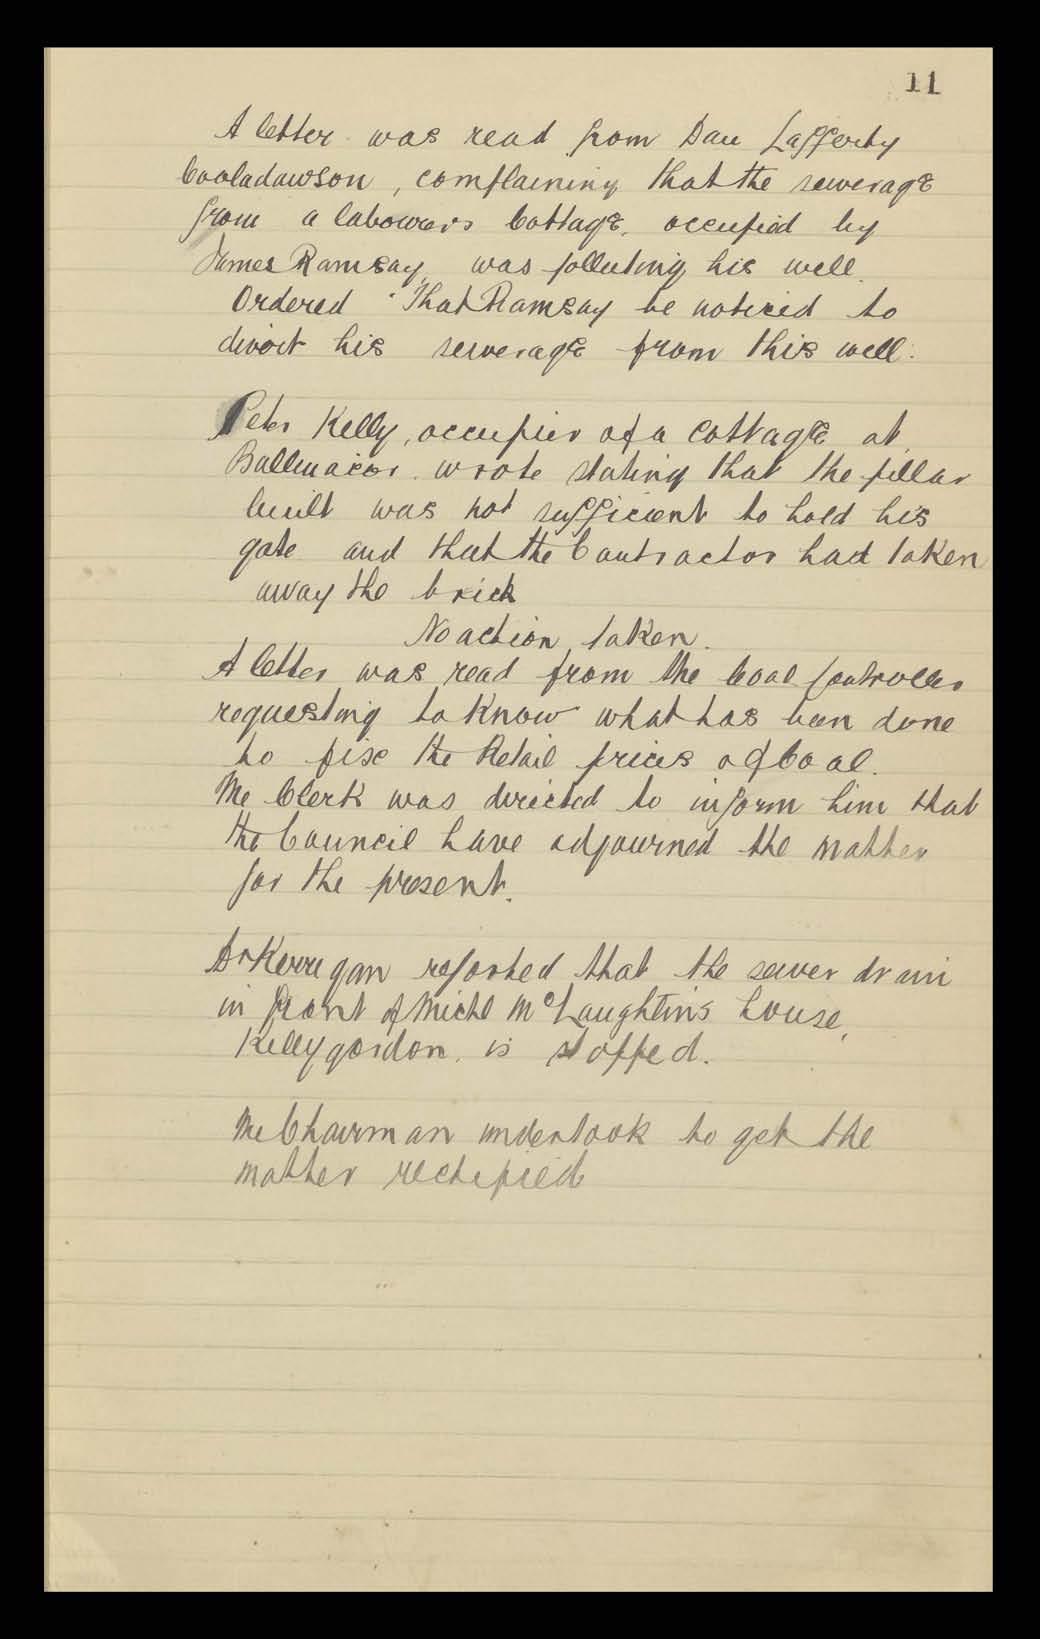 11
A letter was read from Dan Lafferty
Cooladawson, complaining that the sewerage
from a labourers Cottage, occupied by
James Ramsay, was polluting his well.
Ordered "That Ramsay be noticed to
divert his sewerage from this well.
Peter Kelly, occupier of a Cottage at
Ballinacor. wrote stating that the pillar
built was not sufficient to hold his
gate and that the Contractor had taken
away the brick
No action taken.
A letter was read from the Coal Controller
requesting to know what has been done
to fix the Retail prices of Coal.
The Clerk was directed to inform him that
the Council have adjourned the matter
for the present.
Dr Kerrigan reported that the sewer drain
in front of Michl McLaughlin's house,
Killygordon, is stopped.
The Chairman undertook to get the
matter rectified